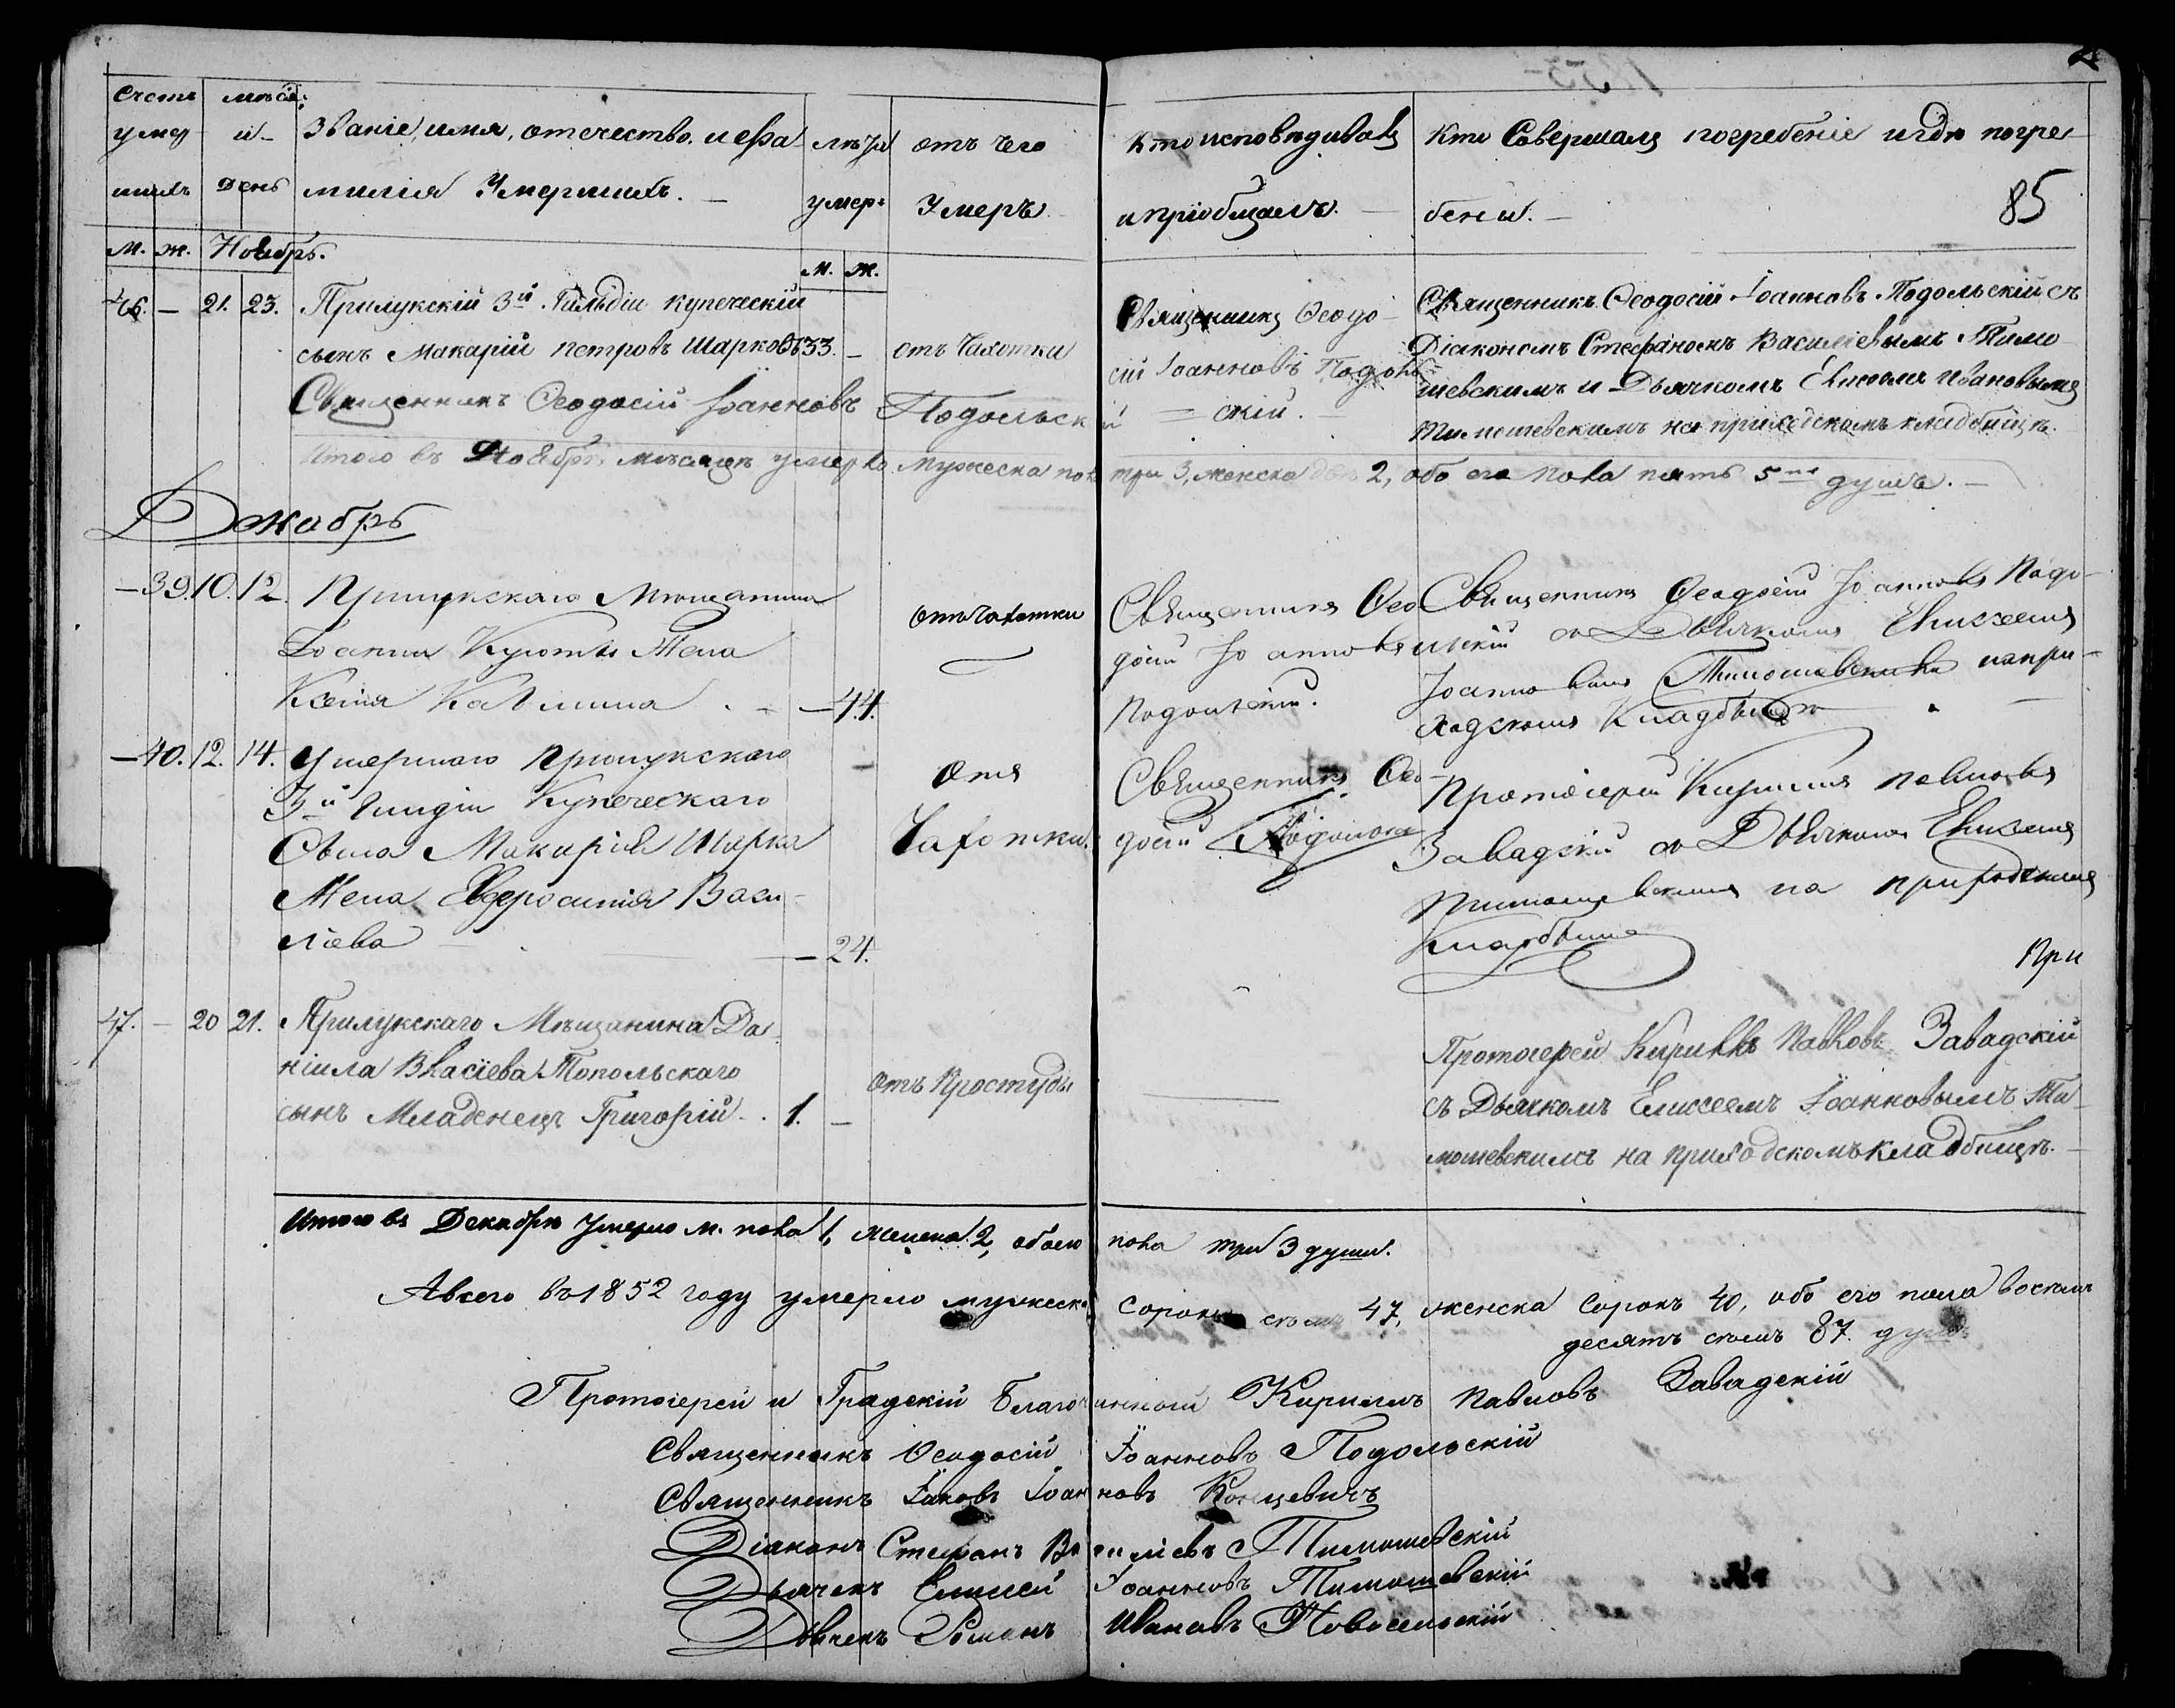 Счетъ умер шихъ
мѣсяц. и день
Званіе, имя, отечество, и фа
милія Умершихъ. —
лѣта умер.
отъ чего
Умеръ
Кто исповѣдивалъ
и пріобщалъ. —
Кто Совершалъ погребеніе и гдѣ погре
бены. —
85
М. Ж. Ноябрь.
М. Ж.
46. — 21. 23. Прилукскій 3й Гильдіи купеческій
сынъ Макарій Петровъ Шарковъ 33. — отъ Чахотки
Священникъ Ѳеодосій Іоанновъ Подольскій
Священникъ Ѳеодо
сій Іоанновъ Подоль
= скій. —
Священникъ Ѳеодосій Іоанновъ Подольскій съ
Діакономъ Стефаномъ Василіевымъ Тимо
шевскимъ и Дьячкомъ Елисеем Ивановымъ
Тимошевскимъ на приходскомъ кладбищѣ.
Итого въ Ноябрѣ мѣсяцѣ умерло мужеска пола три 3, женска две 2, обо его пола пять 5ть душъ. —
Декабрь
— 39. 10. 12. Прилукскаго Мѣщанина
Іоанна Жена
Ксенія — 44.
отъ Чахотки
Священникъ Ѳео
досій Іоанновъ
Подольскій.
Священникъ Ѳеодосій Іоанновъ Подо
льскій съ Дьячкомъ Елисеемъ
Іоанновымъ Тимошевскимъ на при-
ходскомъ Кладбищѣ
— 40. 12. 14. Умершаго Прилукскаго
3й Гилдіи Купеческаго
Сына Макарія Шарка
Жена Евфросинія Васи-
лієва — 24.
Отъ
Чахотки.
Священникъ Ѳео-
досій Подольск
Протоіерей Кириллъ Павловъ
Завадскій съ Дьячкомъ Елисеемъ
Тимошевскимъ на приходскомъ
Кладбищѣ
При
47. — 20 21. Прилукскаго Мѣщанина Да
ніила Власіева Топольскаго
сынъ Младенецъ Григорій. . 1. — отъ Простуды
Протоіерей Кириллъ Павловъ Завадскій
съ Дьячкомъ Елисеемъ Іоанновымъ Ти
мошевскимъ на приходскомъ кладбищѣ. —
Итого въ Декабрѣ Умерло м. пола 1, женска 2, обоего пола три 3 души.
А всего въ 1852 году умерло мужеска сорокъ семь 47, женска сорокъ 40, обо его пола восемь
десятъ семь 87. душъ
Протоіерей и Градскій Благочинный Кириллъ Павловъ Завадскій
Священникъ Ѳеодосій Іоанновъ Подольскій
Священникъ Іаковъ Іоанновъ
Діаконъ Стефанъ Василіевъ Тимошевскій
Дьячекъ Елисей Іоанновъ Тимошевскій
Дьячекъ Романъ Ивановъ Новосельскій